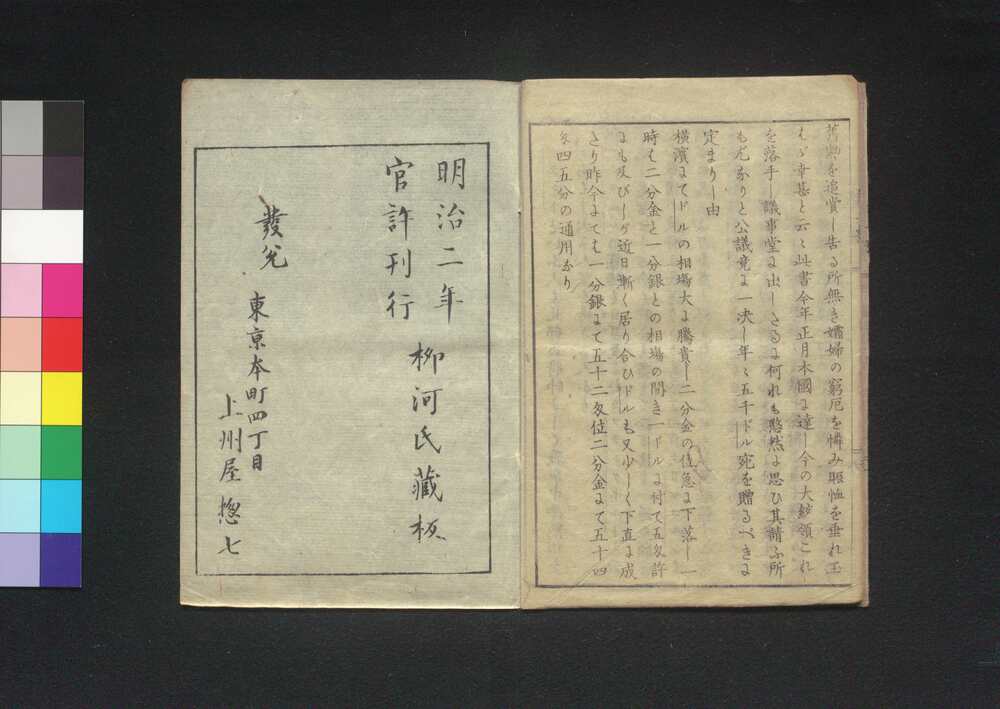 舊典を追賞し告る所無き孀婦の窮厄を憐み賑恤を垂れ玉
はゞ幸甚と云々此書今年正月本國に達し今の大統領これ
を落手し議事堂に出しゝさるに何れも愍然に思ひ其請ふ所
も尤なりと公議竟に一决し年々五千ドル宛を贈るべきに
定まりし由
横濱にてドルの相場大に騰貴し二分金の位急に下落し一
時は二分金と一分銀との相場の開き一ドルに付て五匁許
にも及びしが近日漸く居り合ひドルも又少しく下直に成
さり昨今にては一分銀にて五十二匁位二分金にて五十四
匁四五分の通用なり
明治二年
官許刊行
柳河氏藏板
發兌
東京本町四丁目
上州屋惣七